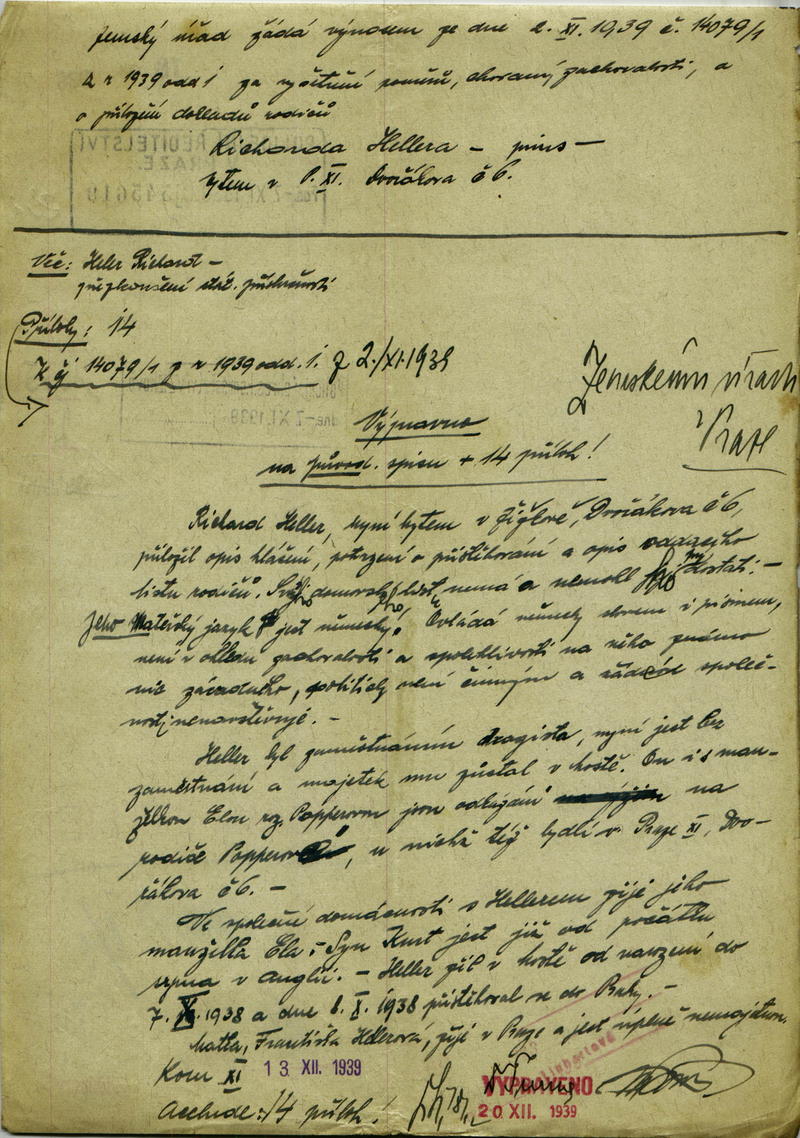 Zemský úřad žádá výnosem ze dne 2. XI. 1939 č. 14079/1
z r 1939 odd 1 za vyšetření poměrů, chování, zachovalosti, a
o přiložení dokladů rodičů
Richarda Hellera - prius -
bytem v P. XI. Dvořákova č 6.
Věc: Heller Richard -
přezkoušení stát. příslušnosti
Přílohy: 14
K čj 14079/1 z r 1939 odd. 1. z 2./XI.1939
Zemskému úřadu
v Praze
Výpravno
na původ. spisu + 14 příloh!
Richard Heller, nyní bytem v Žižkově, Dvořákova č 6,
přiložil opis hlášení, potvrzení o přistěhování a opis oddacího
listu rodičů. Svůj domovský list nemá a nemohl dostati. -
Jeho Mateřský jazyk jest německý. Ovládá německy slovem i písmem,
není v ohledu zachovalosti a spolehlivosti na něho známo
nic závadného, politicky není činným a žádné společ-
nosti nenavštěvuje. -
Heller byl zaměstnáním drogista, nyní jest bez
zaměstnání a majetek mu zůstal v Hostě. On i s man-
želkou Elou roz. Popperovou jsou odkázáni na
rodiče Popperov, u nichž též bydlí v Praze XI, Dvo-
řákova č 6. -
Ve společné domácnosti s Hellerem žije jeho
manželka Ela. - Syn Kurt jest již od počátku
srpna v Anglii. - Heller žil v Hostě od narození do
7. X. 1938 a dne 8. X. 1938 přistěhoval se do Prahy. -
Matka, Františka Hellerová, žije v Praze a jest úplně nemajetna.
Kom XI 13 XII. 1939
Acclude: 14 příloh!
VYPRAVENO
20 XII. 1939